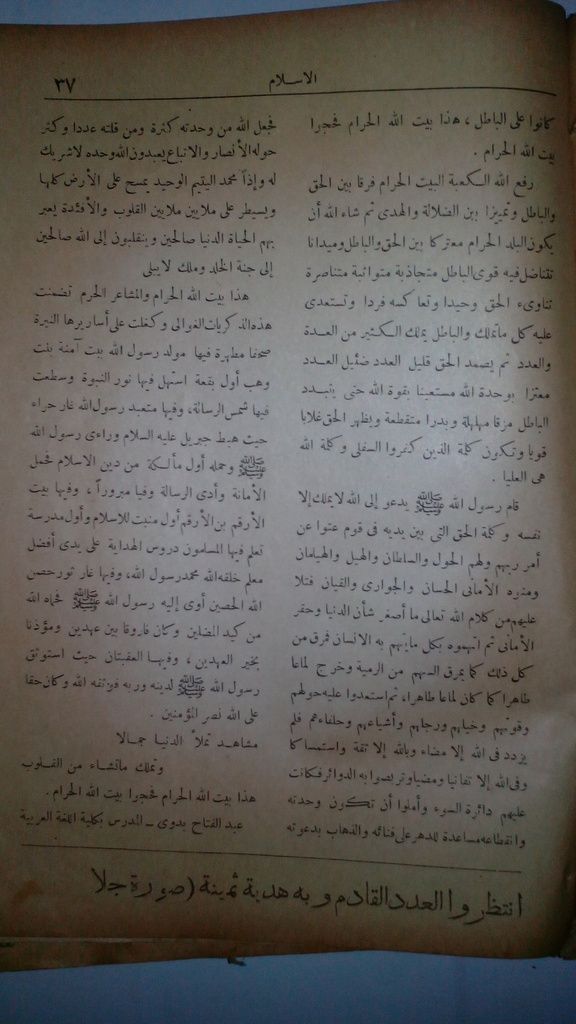 الاسلام
٣٧
كانوا على الباطل، هذا بيت الله الحرام فحجوا
بيت الله الحرام.
رفع الله الكعبة البيت الحرام فرقا بين الحق
والباطل وتمييزا بين الضلالة والهدى ثم شاء الله أن
يكون البلد الحرام معتركا بين الحق والباطل وميدانا
تتناضل فيه قوى الباطل متجاذبة متواثبة متناصرة
تناوىء الحق وحيدا وتعاكسه فردا وتستعدى
عليه كل ماتملك والباطل يملك الكثير من العدة
والعدد ثم يصمد الحق قليل العدد ضئيل العدد
معتزا بوحدة الله مستعينا بقوة الله حتى يتبدد
الباطل مزقا مهلهلة وبددا متقطعة ويظهر الحق غلابا
قويا وتكون كلمة الذين كفروا السفلى وكلمة الله
هى العليا.
قام رسول الله ﷺ يدعو إلى الله لايملك إلا
نفسه وكلمة الحق التى بين يديه فى قوم عتوا عن
أمر ربهم ولهم الحول والسلطان والهيل والهيلمان
ومتوه الأمانى الحسان والجوارى والقيان فتلا
عليهم من كلام الله تعالى ما أصغر شأن الدنيا وحقر
الأمانى ثم اتهموه بكل مايتهم به الانسان فمرق من
كل ذلك كما يمرق السهم من الرمية وخرج لماعا
طاهرا كما كان لماعا طاهرا، ثم استعدوا عليه حولهم
وقوتهم وخيلهم ورجلهم وأشياعهم وحلفاءهم فلم
يزدد فى الله إلا مضاء وبالله إلا ثقة واستمساكا
وفى الله إلا تفانيا ومضيا وتربصوا به الدوائر فكانت
عليهم دائرة السوء وأملوا أن تكون وحدته
وانقطاعه مساعدة للدهر على فنائه والذهاب بدعوته
فجعل الله من وحدته كثرة ومن قلته عددا وكثر
حوله الأنصار والاتباع يعبدون الله وحده لاشريك
له وإذا محمد اليتيم الوحيد يمسح على الأرض كلها
ويسيطر على ملايين ملايين القلوب والأفئدة يعبر
بهم الحياة الدنيا صالحين وينقلبون إلى الله صالحين
إلى جنة الخلد وملك لايبلى
هذا بيت الله الحرام والمشاعر الحرم تضمنت
هذه الذكريات الغوالى وكفلت على أساريرها النيرة
صحفا مطهرة فيها مولد رسول الله بيت آمنة بنت
وهب أول بقعة استهل فيها نور النبوة وسطعت
فيها شمس الرسالة، وفيها متعبد رسول الله غار حراء
حيث هبط جبريل عليه السلام وراءى رسول الله
ﷺ وحمله أول مألكة من دين الاسلام فحمل
الأمانة وأدى الرسالة وفيا مبرورا، وفيها بيت
الأرقم بن الأرقم أول منبت للاسلام وأول مدرسة
تعلم فيها المسلمون دروس الهداية على يدى أفضل
معلم خلقه الله محمد رسول الله، وفيها غار ثور حصن
الله الحصين أوى إليه رسول الله ﷺ فحماه الله
من كيد المضلين وكان فاروقا بين عهدين ومؤذنا
بخير العهدين، وفيها العقبتان حيث استوثق
رسول الله ﷺ لدينه وربه فوثقه الله وكان حقا
على الله نصر المؤمنين.
مشاهد تملأ الدنيا جمالا
وتملك ماتشاء من القلوب
هذا بيت الله الحرام فحجوا بيت الله الحرام.
عبد الفتاح بدوى ــ المدرس بكلية اللغة العربية
انتظروا العدد القادم وبه هدية ثمينة (صورة جلا